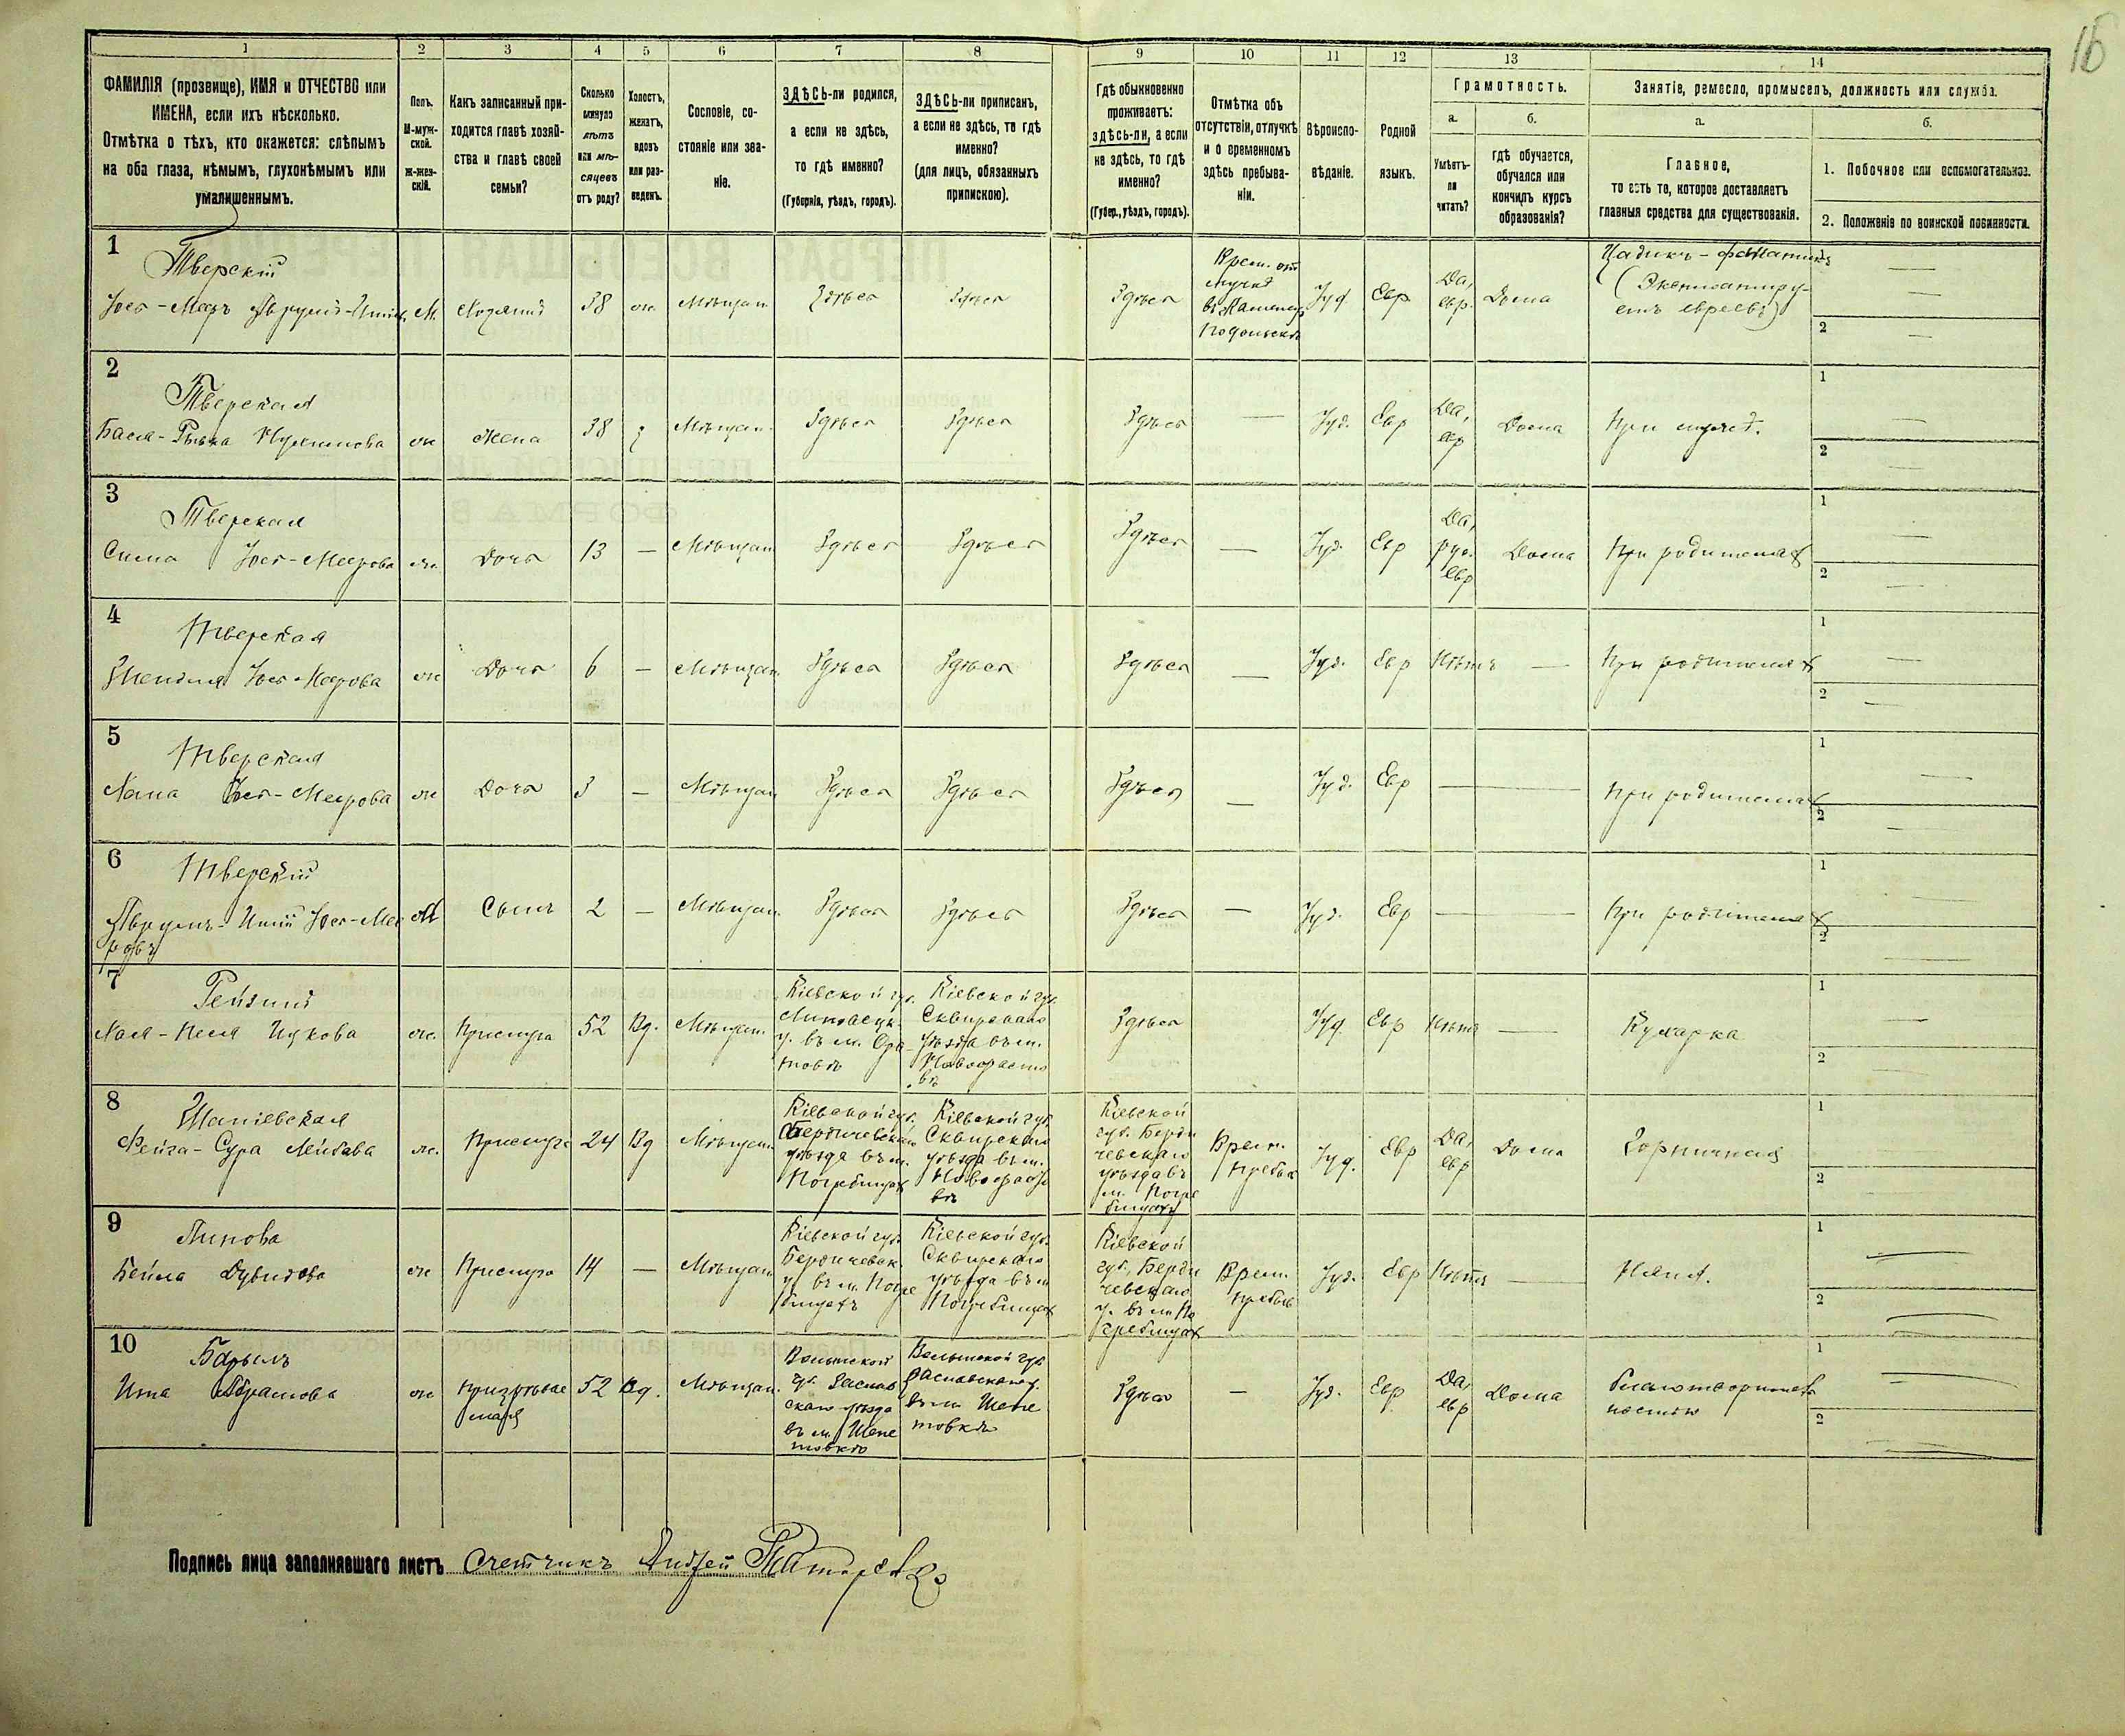 16
1 2 3 4 5 6 7 8 9 10 11 12 13 14
ФАМИЛІЯ (прозвище), ИМЯ и ОТЧЕСТВО или
ИМЕНА, если ихъ нѣсколько.
Отмѣтка о тѣхъ, кто окажется: слѣпымъ
на оба глаза, нѣмымъ, глухонѣмымъ или
умалишеннымъ.
Полъ.
М-муж-
ской.
ж-жен-
скій.
Какъ записанный при-
ходится главѣ хозяй-
ства и главѣ своей
семьи?
Сколько
минуло
лѣтъ
или мѣ-
сяцевъ
отъ роду?
Холостъ,
женатъ,
вдовъ
или раз-
веденъ.
Сословіе, со-
стояніе или зва-
ніе.
ЗДѢСЬ-ли родился,
а если не здѣсь,
то гдѣ именно?
(Губернія, уѣздъ, городъ).
ЗДѢСЬ-ли приписанъ,
а если не здѣсь, то гдѣ
именно?
(для лицъ, обязанныхъ
припискою).
Гдѣ обыкновенно
проживаетъ:
здѣсь-ли, а если
не здѣсь, то гдѣ
именно?
(Губер., уѣздъ, городъ).
Отмѣтка объ
отсутствіи, отлучкѣ
и о временномъ
здѣсь пребыва-
ніи.
Вѣроиспо-
вѣданіе.
Родной
языкъ.
Грамотность.
а.
Умѣетъ-
ли
читать?
б.
гдѣ обучается,
обучался или
кончилъ курсъ
образованія?
Занятіе, ремесло, промыселъ, должность или служба.
а.
Главное,
то есть то, которое доставляетъ
главныя средства для существованія.
б.
1. Побочное или вспомогательное.
2. Положеніе по воинской повинности.
1
Тверскій
М. Хозяинъ 38 ж. Мѣщан. Здѣсь Здѣсь Здѣсь
Врем. от
лучка
въ Каменец
Подольскъ
Іуд. Евр
Да,
евр.
Дома
Цадикъ - фанатикъ
(Эксплоатиру-
етъ евреевъ)
1
2
2
Тверская
ж Жена 38 Мѣщан. Здѣсь Здѣсь Здѣсь — Іуд. Евр
Да,
евр
Дома При муже.
1
2
3
Тверская
Сима Іос-Меерова ж. Дочь 13 — Мѣщан Здѣсь Здѣсь Здѣсь — Іуд. Евр
Да,
рус.
евр
Дома При родителях
1
2
4
Тверская
Іос-Меерова ж Дочь 6 — Мѣщан. Здѣсь Здѣсь Здѣсь — Іуд. Евр Нѣтъ — При родителях
1
2
5
Тверская
Хана Іос-Меерова ж Дочь 3 — Мѣщан Здѣсь Здѣсь Здѣсь — Іуд. Евр — При родителях
1
2
6
Тверскій
Іос-Мее
ровъ
М Сынъ 2 — Мѣщан. Здѣсь Здѣсь Здѣсь — Іуд. Евр — При родителях
1
2
7
Хая-Песя Ицкова ж. Прислуга 52 Вд. Мѣщан.
Кіевской гу.
Липовецк.
у. въ м. Ора-
товѣ
Кіевской губ.
Сквирскаго
уѣзда въ м.
Новофасто
вѣ
Здѣсь Іуд Евр Нѣтъ — Кухарка
1
2
8
Фейга-Сура Лейбова ж. Прислуга 24 Вд Мѣщан.
Кіевской губ.
Бердичевскаго
уѣзда въ м.
Погребищах
Кіевской губ.
Сквирскаго
уѣзда въ м.
Новофасто
вѣ
Кіевской
губ. Берди
чевскаго
уѣзда въ
м. Погре
бищах
Врем.
пребыв
Іуд. Евр
Да,
евр
Дома Горничная
1
2
9
Липова
Бейла Дувидова ж Прислуга 14 — Мѣщан
Кіевской губ.
Бердичевск.
у. въ м. Погре
бищахъ
Кіевской губ.
Сквирскаго
уѣзда въ м
Погребищах
Кіевской
губ. Берди
чевскаго
у. въ м. По
гребищах
Врем.
пребыв
Іуд. Евр Нѣтъ — Няня.
1
2
10
Ита Абрамова ж
призрѣвае
мая
52 Вд. Мѣщан.
Волынской
гу. Заслав
скаго уѣзда
въ м. Шепе
товкѣ
Волынской губ
Заславскаго у.
въ м. Шепе
товкѣ
Здѣсь — Іуд. Евр
Да,
евр
Дома
благотворитель
ностью
1
2
Подпись лица заполнявшаго листъ Счетчикъ Андрей